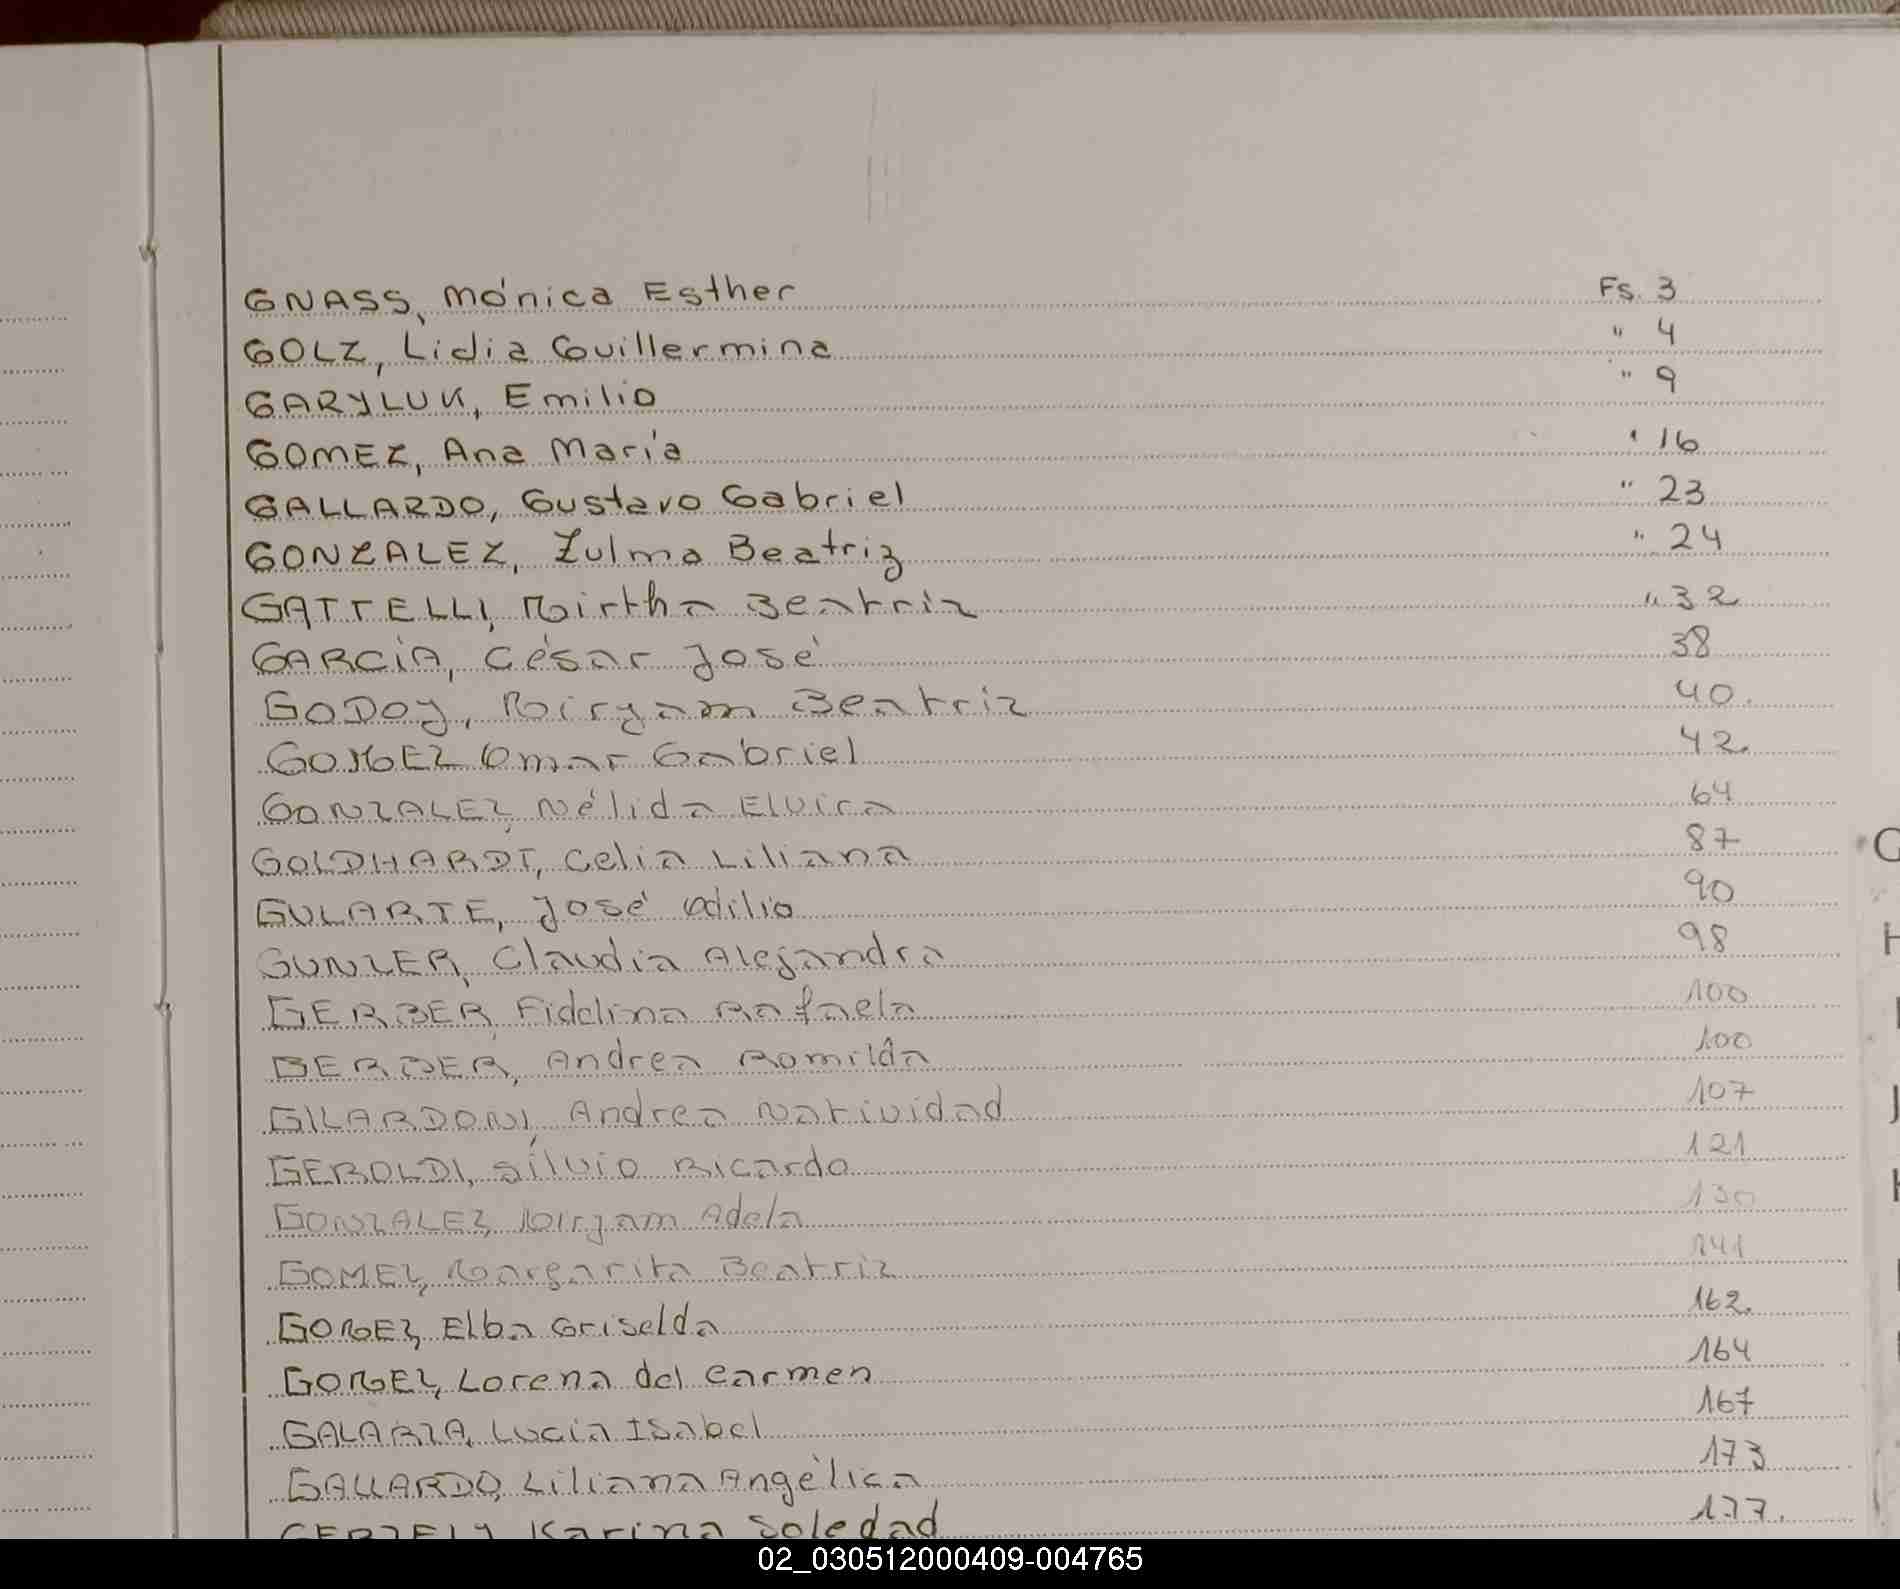 GNASS, Mónica Esther Fs. 3
GOLZ, Lidia Guillermina " 4
GARYLUK, Emilio " 9
GOMEZ, Ana María " 16
GALLARDO, Gustavo Gabriel " 23
GONZALEZ, Zulma Beatriz " 24
GATTELLI, Mirtha Beatriz " 32
GARCÍA, César José 38
GODOY, Miryam Beatriz 40.
GOMEZ Omar Gabriel 42.
GONZALEZ, Nélida Elvira 64
GOLDHARDT, Celia Liliana 87
GULARTE, José Odilio 90
GUNZER, Claudia Alejandra 98
GERBER, Fidelina Rafaela 100
BERBER, Andrea Romilda 100
GILARDONI, Andrea Natividad 107
GEROLDI, Silvio Ricardo 121
GONZALEZ, Miryam Adela 130
GOMEZ, Margarita Beatriz 141
GOMEZ, Elba Griselda 162.
GOMEZ, Lorena del Carmen 164
GALARZA, Lucía Isabel 167
GALLARDO, Liliana Angélica 173
Karina Soledad 177.
G
H
J
K
02_030512000409-004765